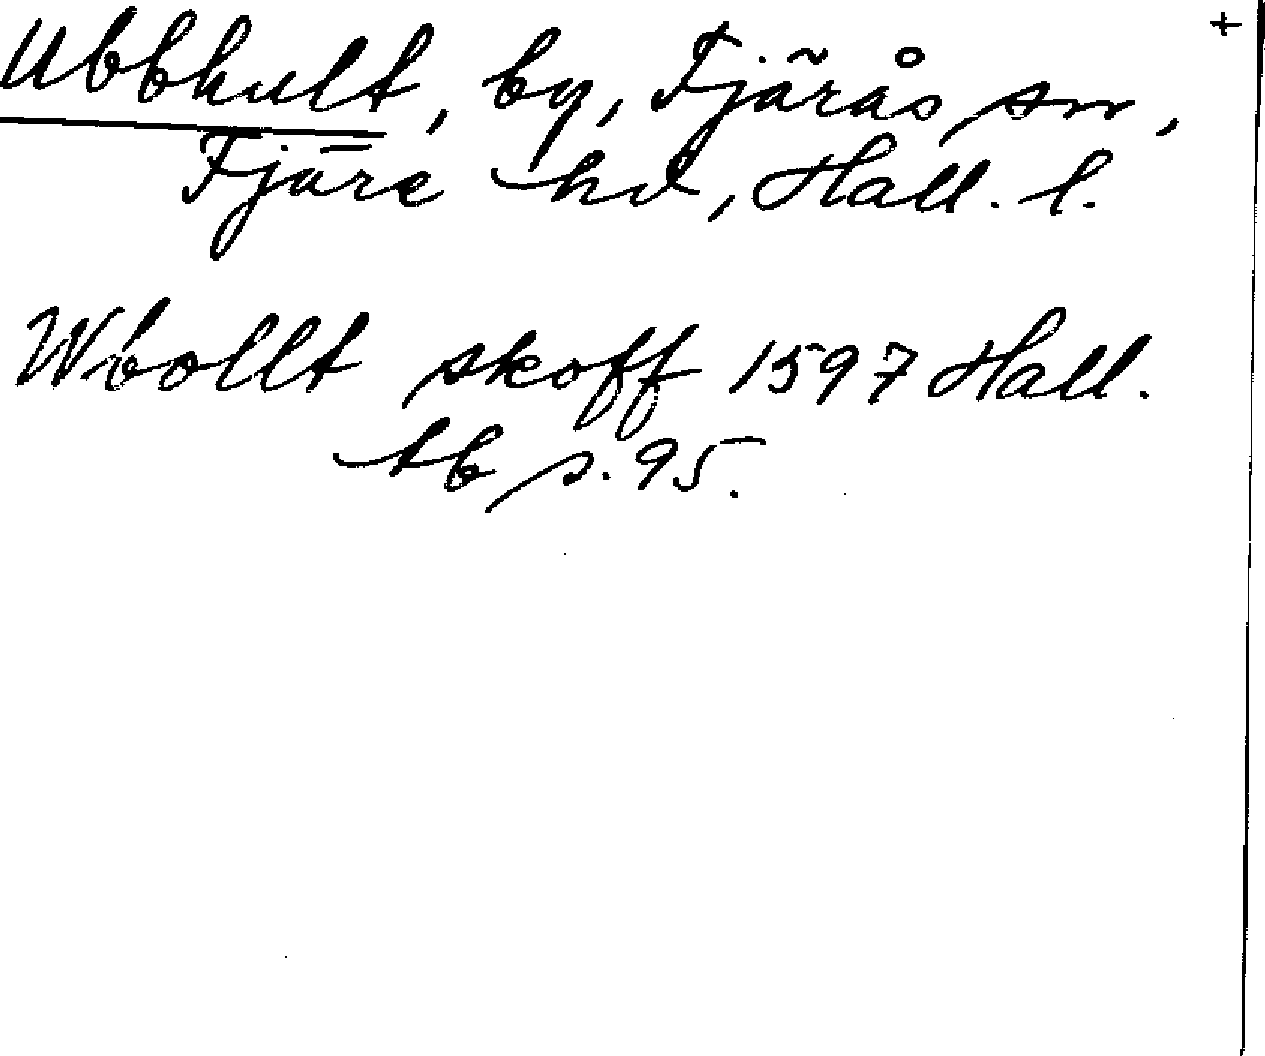 Ubbhult, by, Fjärås sn, +
Fjäre hd, Hall. l.
Wbollt skoff 1597 Hall.
tb s. 95.